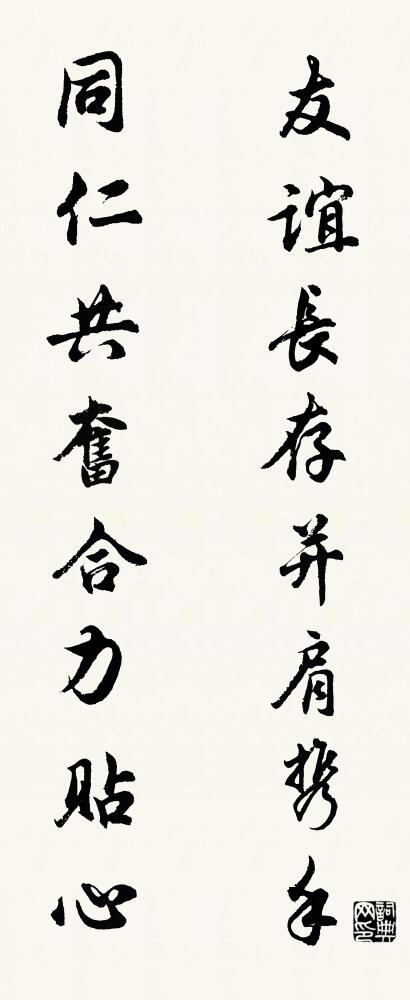 友誼長存并肩携手
同仁共奮合力貼心
詞典網印